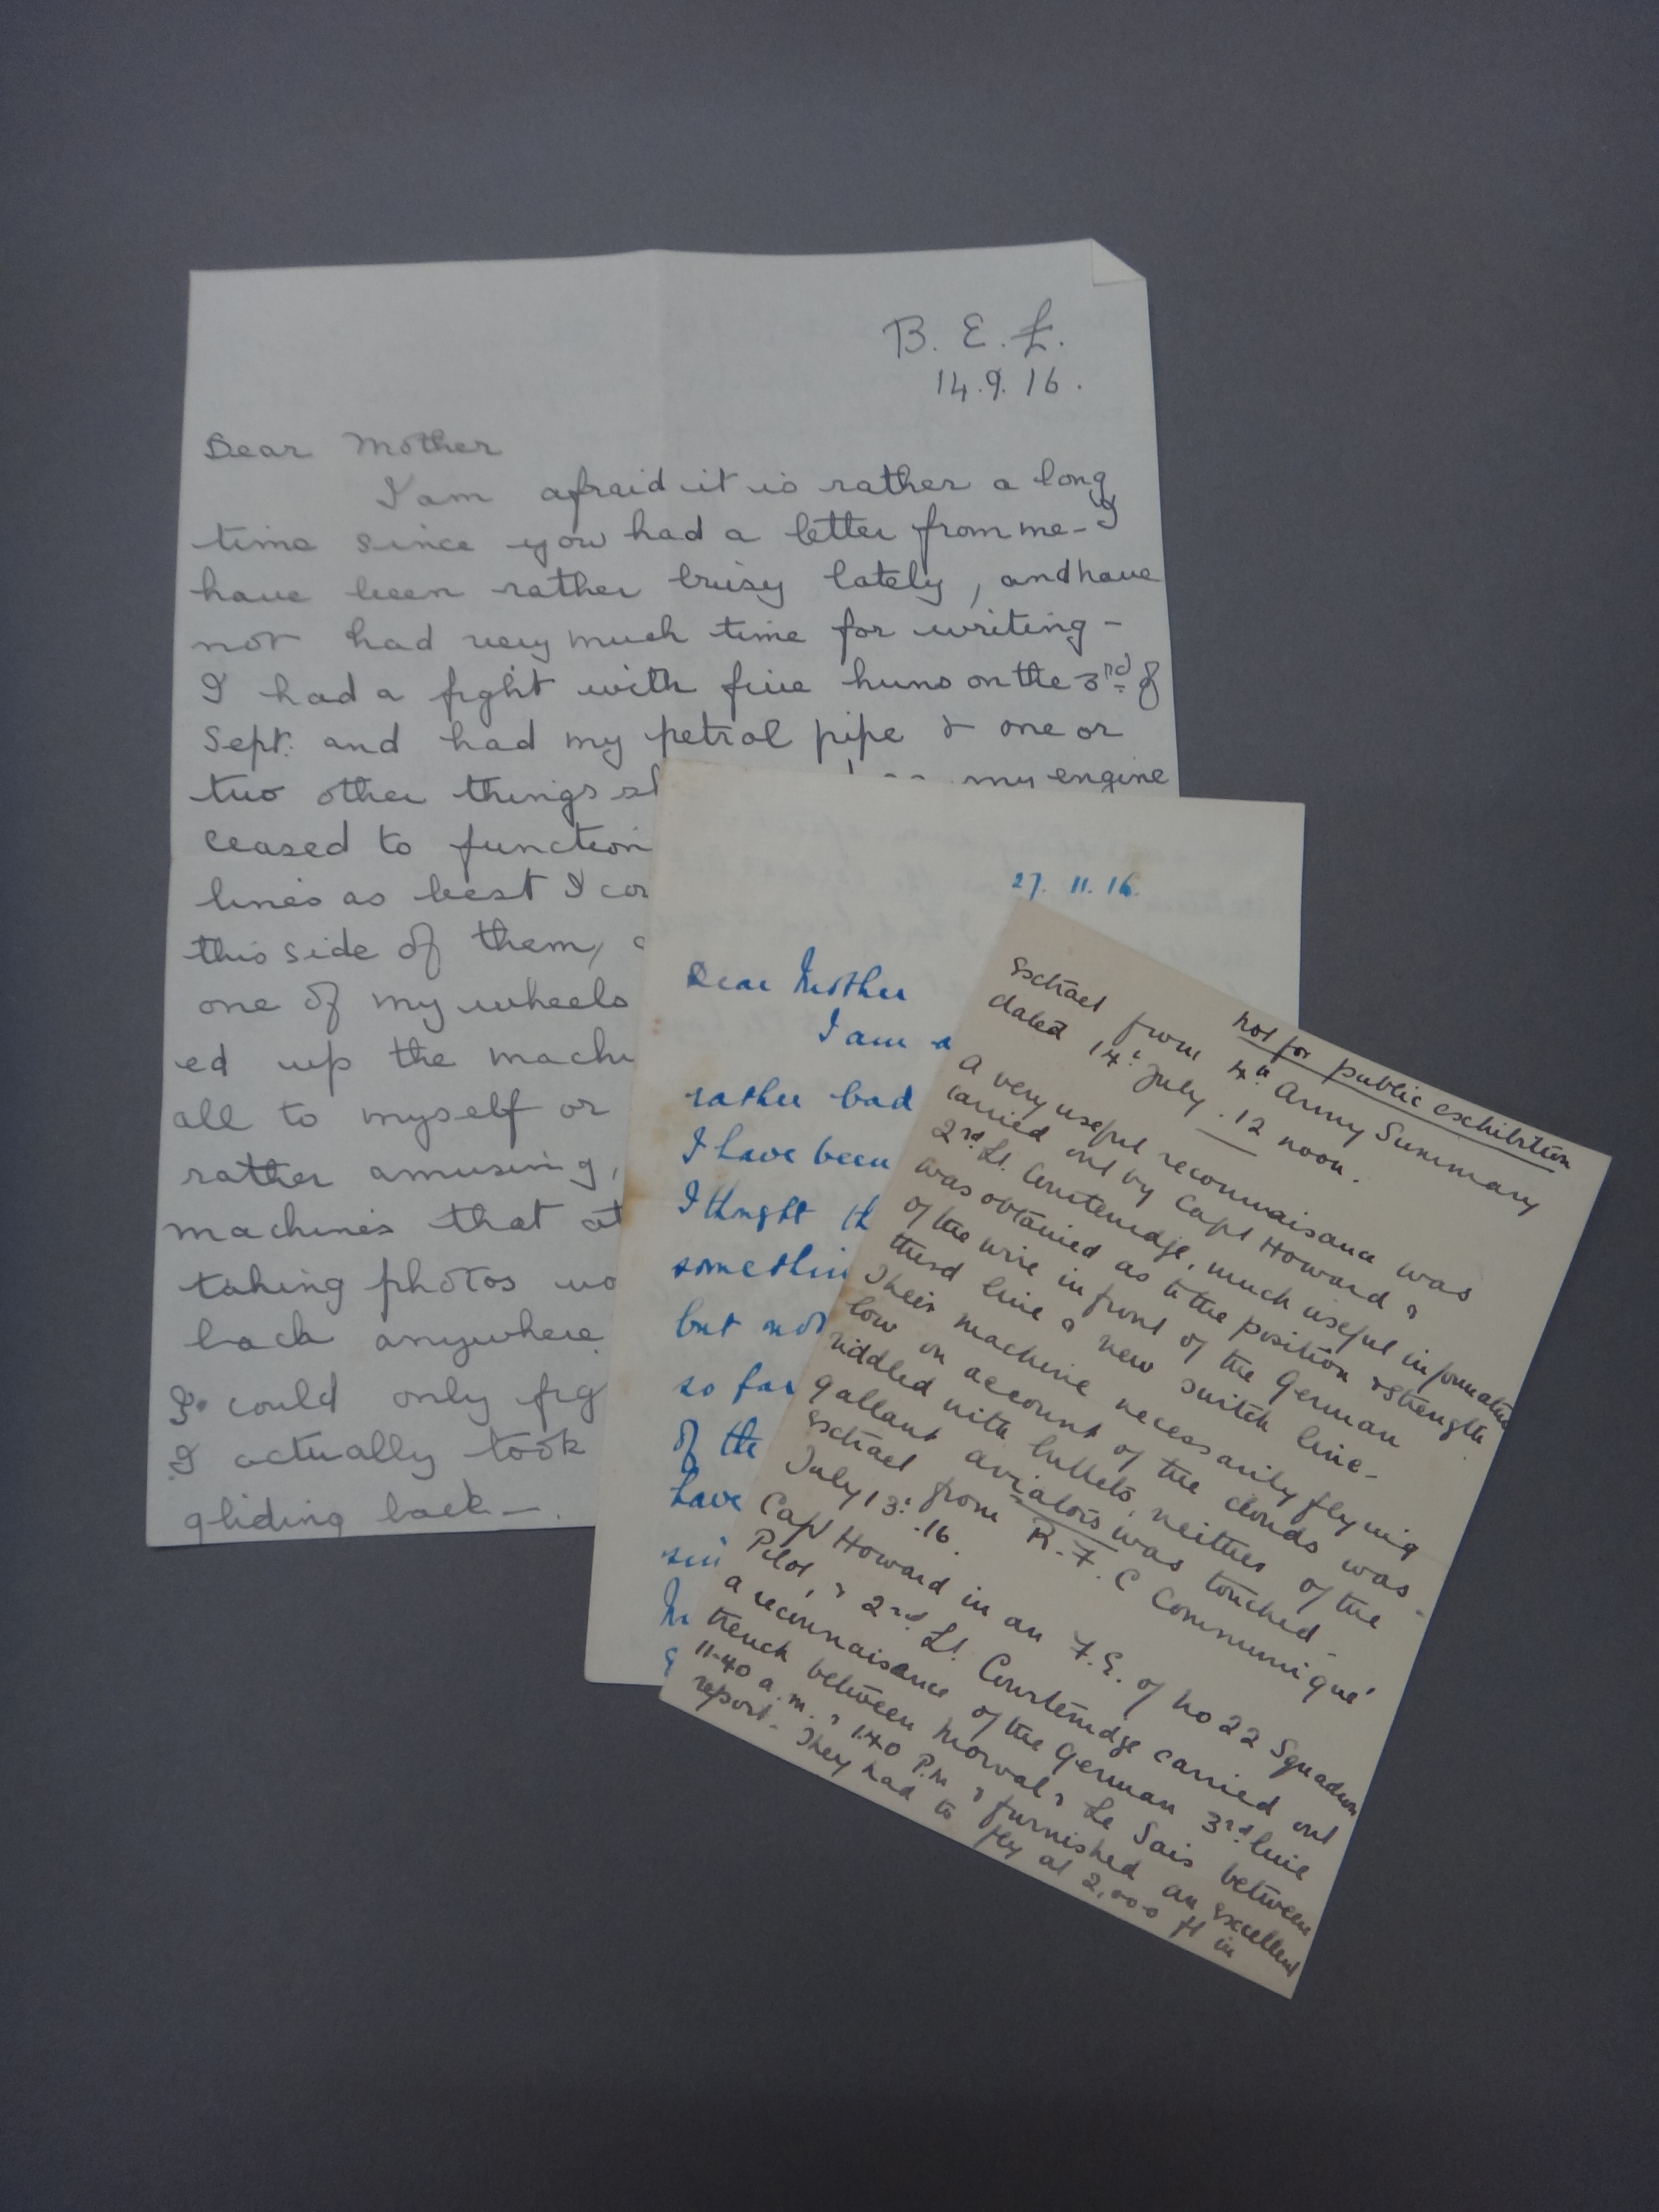 B. E. F.
14.9.16.
Dear Mother
I am afraid it is rather a long
time since you had a letter from me - I
have been rather busy lately, and have
not had very much time for writing -
I had a fight with five huns on the 3rd of
Sept. and had my petrol pipe & one or
two other things my engine
ceased to function
lines as best I
this side of them,
one of my wheels
ed up the
all to myself or
rather amusing,
machines that
taking photos
back anywhere
I could only
I actually took
gliding back -
27. 11. 16.
Dear Mother
I am
rather bad
I have been
I thought
but
so far
of the
have
not for public exhibition
Extract from 4th Army Summary
dated 14th July. 12 noon.
A very useful reconnaisance was
carried out by Capt Howard &
2nd Lt. Courtenidge, much useful information
was obtained as to the position & strength
of the wire in front of the German
third line & new switch line -
Their machine necessarily flying
low on account of the clouds was
riddled with bullets, neither of the
gallant aviators was touched -
Extract from R.F.C Communiqué
July 13: .16.
Capt Howard in an F.E. of No 22 Squadron
Pilot, & 2nd Lt. Courtenidge carried out
a reconnaisance of the German 3rd line
trench between Morval & Le Sais between
11-40 a.m. & 1.40 P.M & furnished an excellent
report - They had to fly at 2,000 ft in